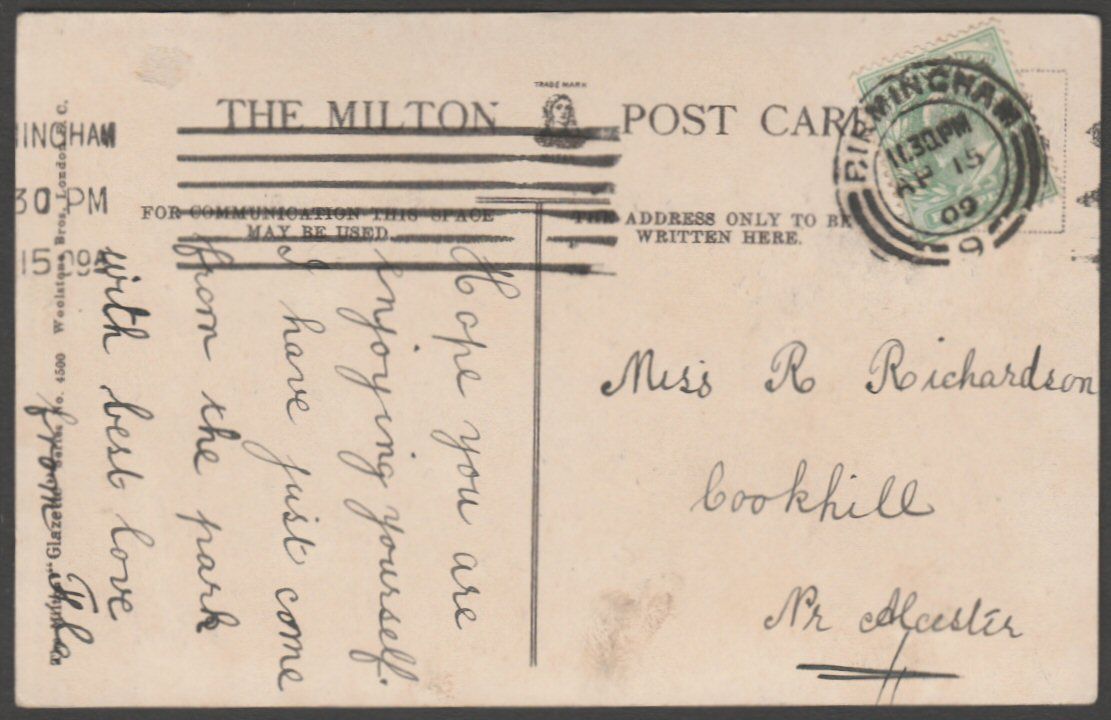 TRADE MARK
THE MILTON POST CARD
FOR COMMUNICATION THIS SPACE
MAY BE USED
THE ADDRESS ONLY TO BE
WRITTEN HERE.
BIRMINGHAM
11.30.PM
AP 15
09
9
INGHAM
30 PM
15 09
Hope you are
enjoying yourself.
I have just come
from the park
with best love
from Flo
Miss R Richardson
Cookhill
Nr Alcester
The Milton "Glazette" Series No. 4500 Woolstone Bros., London, E.C.